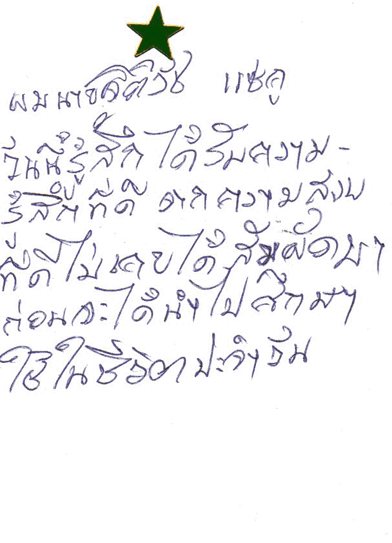 ผมนาย แซ่คู
วันนี้รู้สึกได้รับความ-
รู้สึกที่ดี จากความสงบ
ที่ดีไม่เคยได้สัมผัสมา
ก่อนจะได้นำไปศึกษา
ใช้ในชีวิตประจำวัน